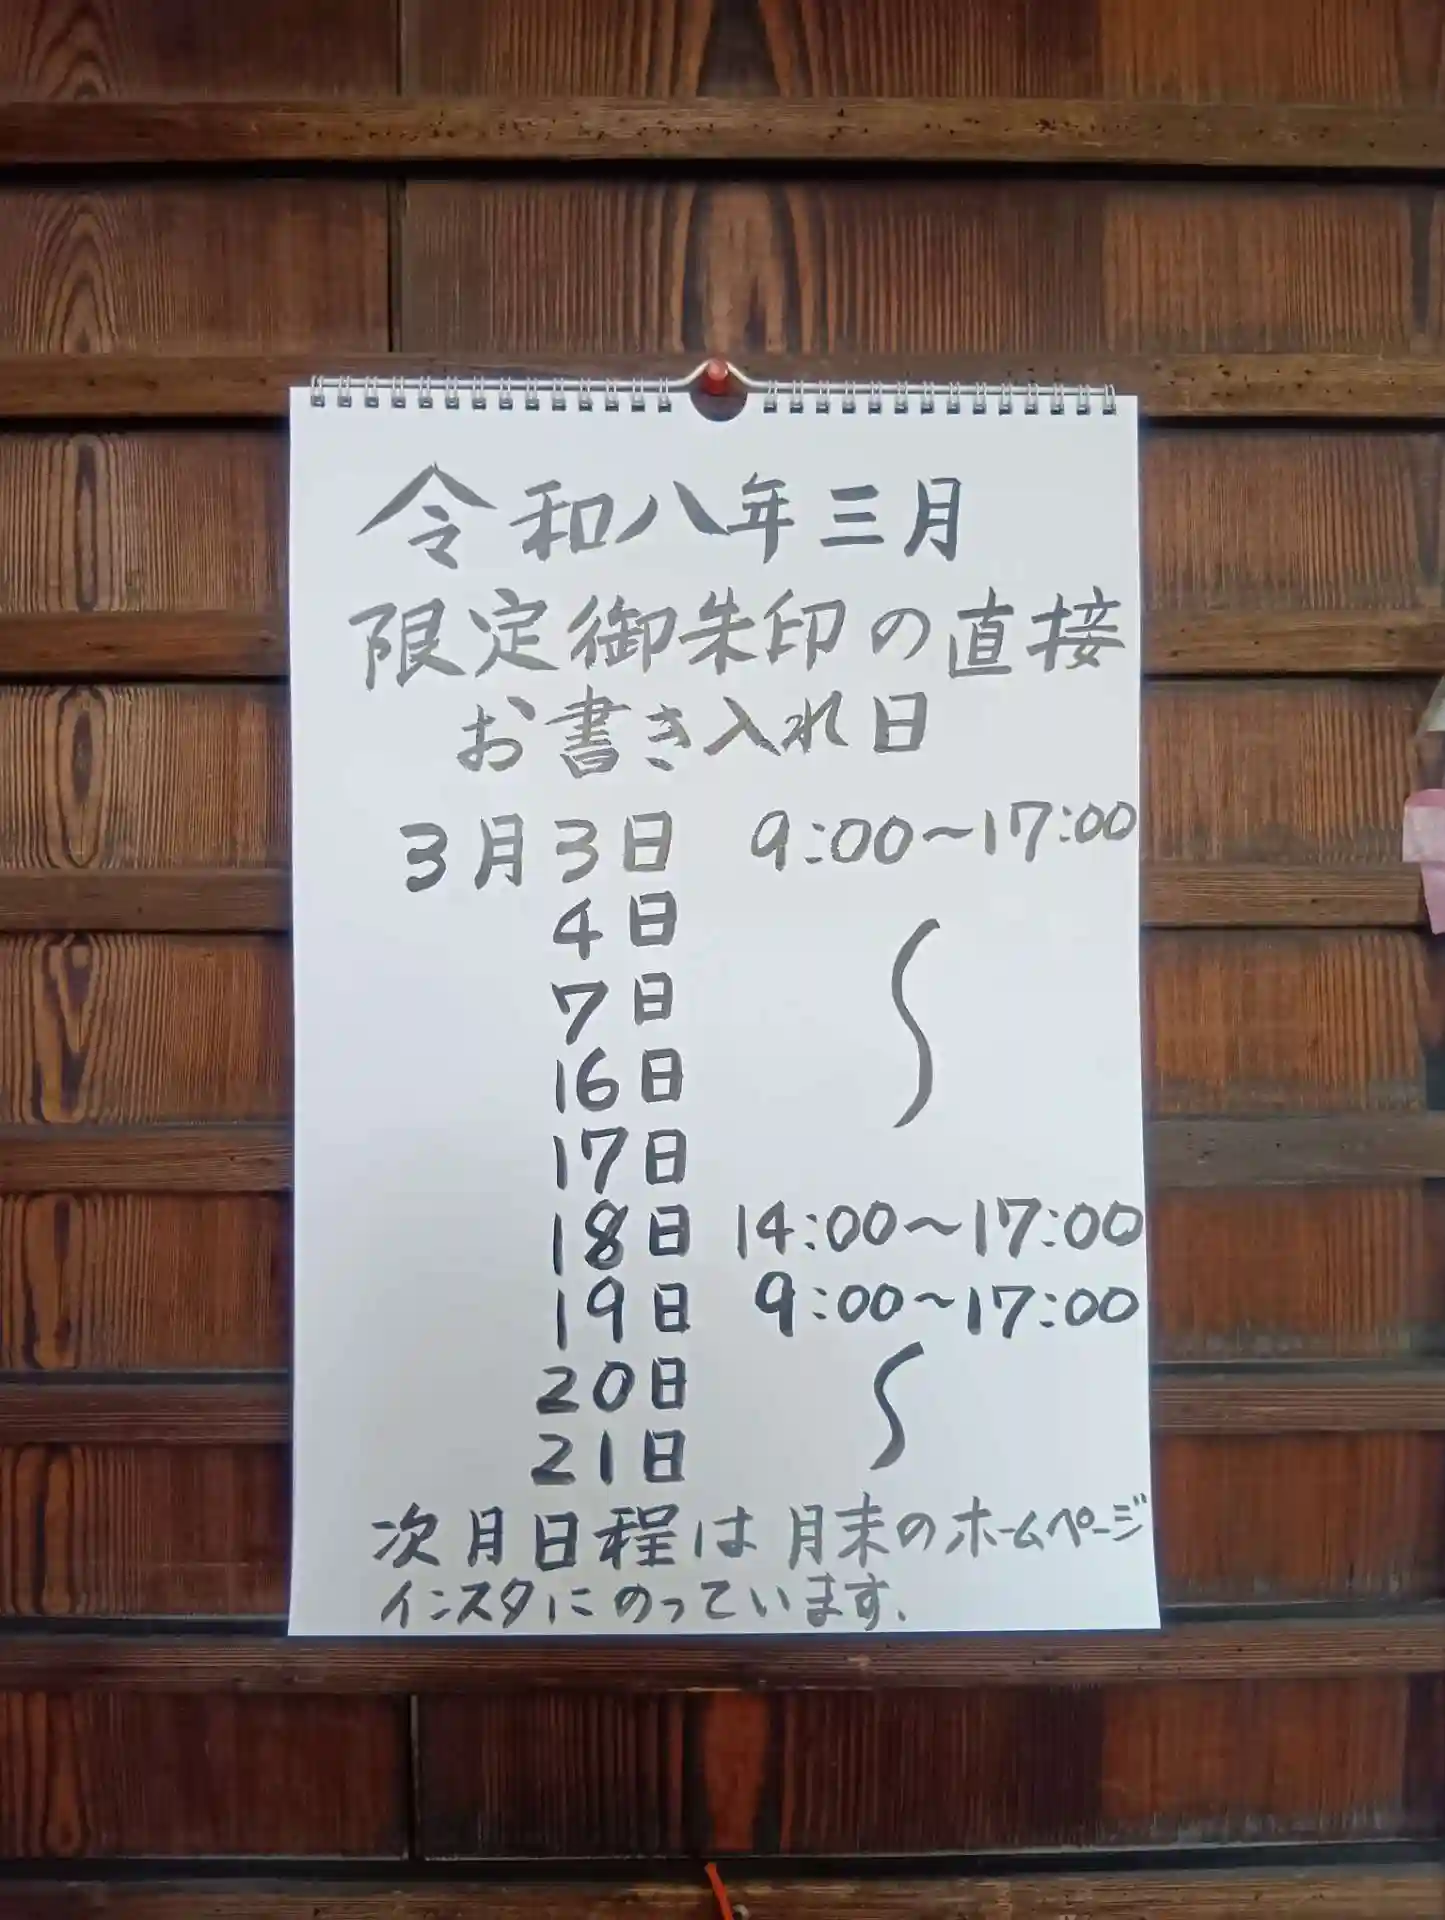 令和八年三月
限定御朱印の直接
お書き入れ日
3月3日 9:00〜17:00
4日
7日
16日
17日
18日 14:00〜17:00
19日 9:00〜17:00
20日
21日
次月日程は月末のホームページ
インスタにのっています.